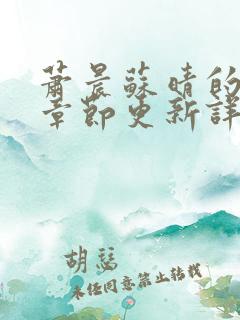 萧晨蘇晴的
章節更新詳
胡瑟
未经同意禁止转载